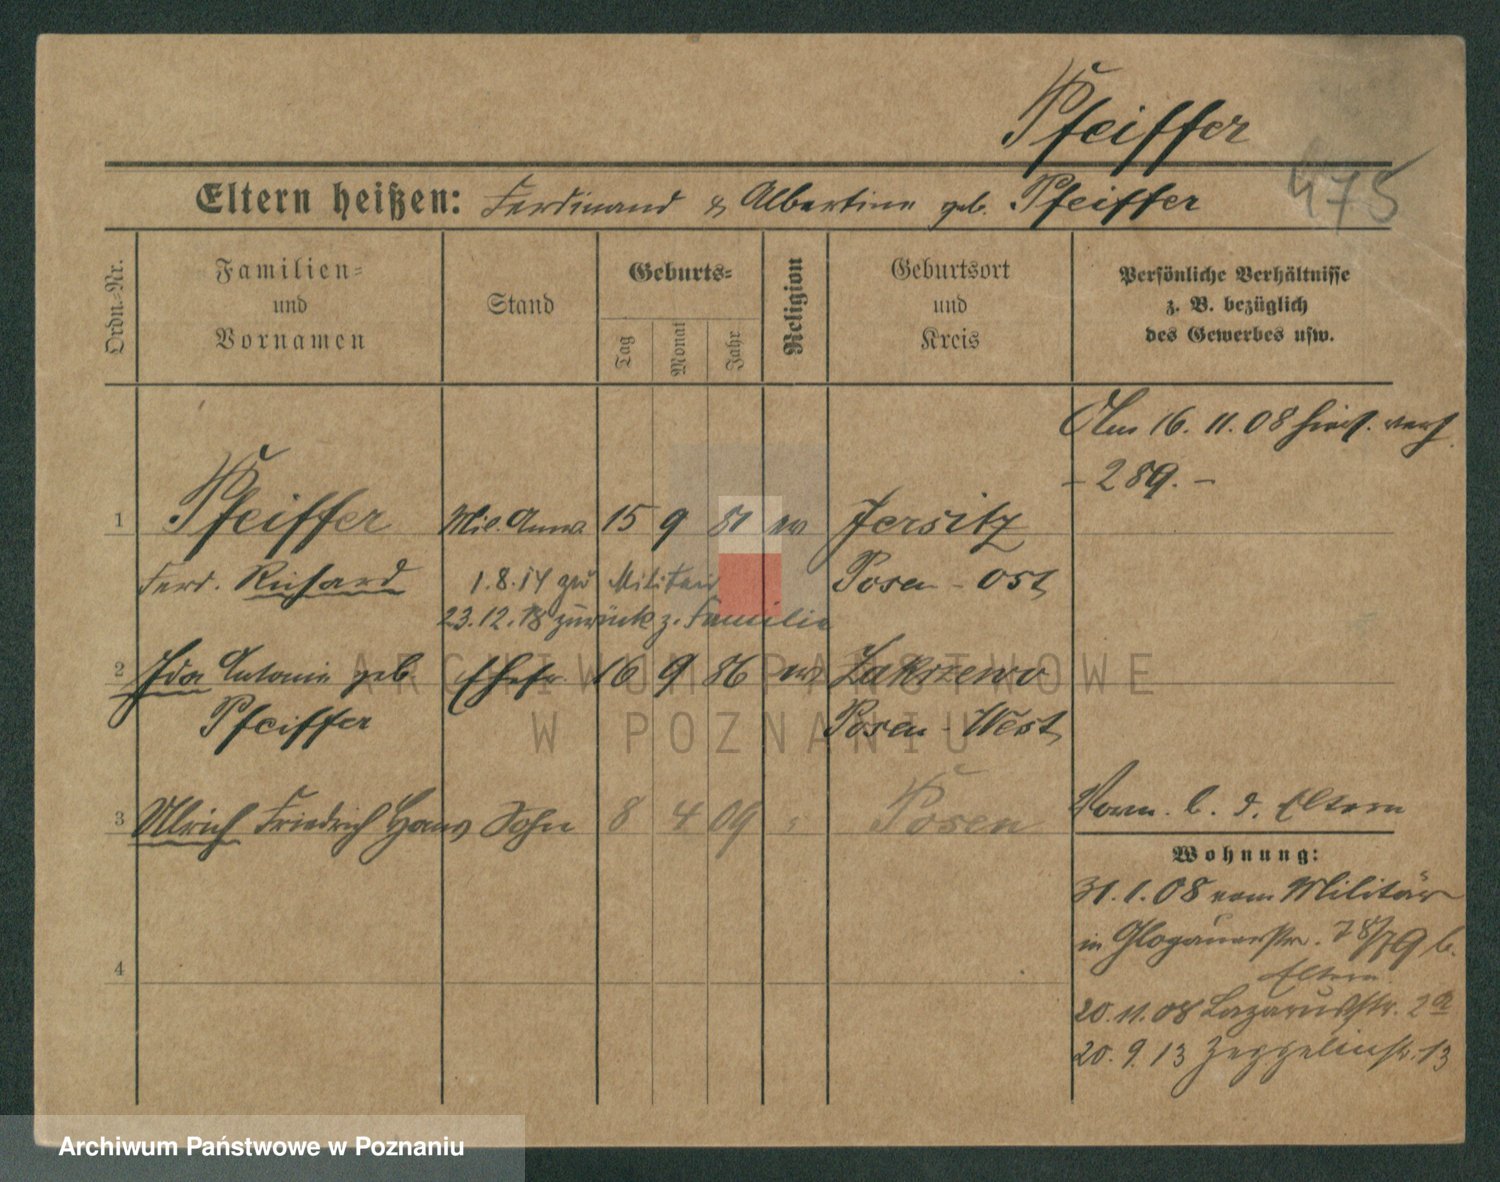 Pfeiffer
475
Eltern heißen: Ferdinand & Albertine geb. Pfeiffer
Ordn.-Nr.
Familien-
und
Vornamen
Stand
Geburts-
Tag
Monat
Jahr
Religion
Geburtsort
und
Kreis
Persönliche Verhältnisse
z. B. bezüglich
des Gewerbes usw.
Am 16. 11. 08 verh.
- 289. -
1 Pfeiffer Mil. Anw. 15 9 81 ev Jersitz
Ferd. Richard 1.8.14 zu Militär Posen - Ost
23.12.18 zurück z. Familie
2 Ida Antonie geb Ehefr. 16 9 86 ev Zakrzewo
Pfeiffer Posen - West
3 Ulrich Friedrich Hans Sohn 8 4 09 Posen
Vorm. b. d. Eltern
Wohnung:
31.1.08 vom Militär
in Glogauerstr. 78/79 b.
Eltern
20.11.08 Lazarusstr. 2a
20.9.13 Zeppelinstr. 13
4
ARCHIWUM PAŃSTWOWE
W POZNANIU
Archiwum Państwowe w Poznaniu